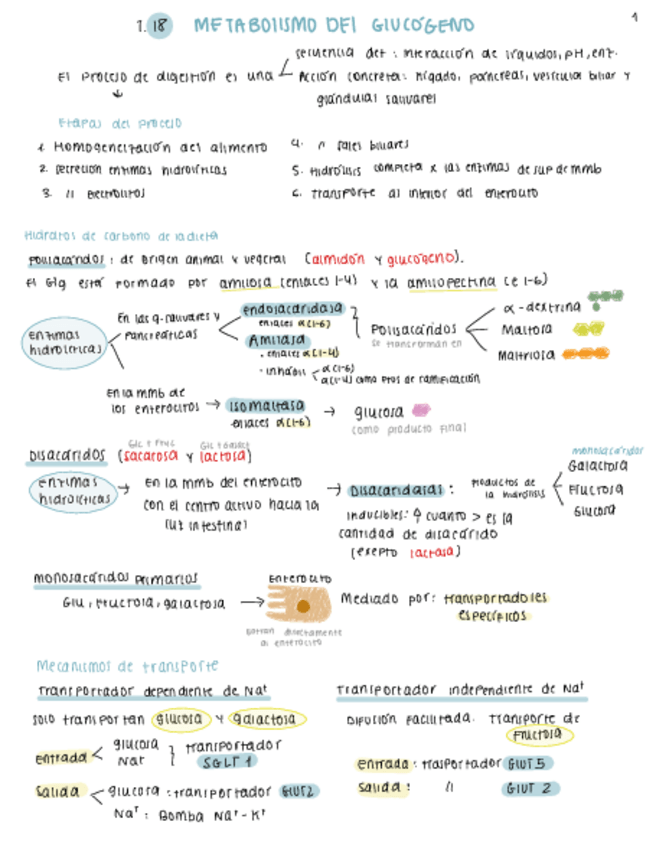 1
1. 18 METABOLISMO DEL GLUCÓGENO
secuencia det : interacción de líquidos, pH, enz.
El proceso de digestión es una
Acción concreta : hígado, páncreas, vesícula biliar y
glándulas salivares
Etapas del proceso
1. Homogeneización del alimento
2. Secreción enzimas hidrolíticas
3. // electrolitos
4. // sales biliares
5. Hidrólisis completa x las enzimas de sup de mmb
6. Transporte al interior del enterocito
Hidratos de carbono de la dieta
Polisacáridos : de origen animal y vegetal (almidón y glucógeno).
El Glg está formado por amilosa (enlaces 1-4) y la amilopectina (e 1-6)
Enzimas hidrolíticas
En las g. salivares y pancreáticas
endosacaridasa
enlaces α(1-6)
Amilasa
· enlaces α(1-4)
· inhábil
α(1-6)
α(1-4) como ptos de ramificación
Polisacáridos
se transforman en
α-dextrina
Maltosa
Maltriosa
En la mmb de los enterocitos → isomaltasa
enlaces α(1-6)
→ glucosa
como producto final
Glc + Fruc Glc + Galact
DISACÁRIDOS (sacarosa y lactosa)
Enzimas hidrolíticas
→ En la mmb del enterocito
con el centro activo hacia la
luz intestinal
→ Disacaridasas :
Productos de la hidrólisis
monosacáridos
Galactosa
Fructosa
Glucosa
Inducibles: ↑ cuanto > es la
cantidad de disacárido
(exepto lactasa)
MONOSACÁRIDOS PRIMARIOS
Glu, Fructosa, galactosa →
Enterocito
Entran directamente
al enterocito
Mediado por: transportadores
específicos
Mecanismos de transporte
Transportador dependiente de Na+
Solo transportan glucosa y galactosa
entrada
glucosa
Na+
transportador
SGLT 1
Salida
glucosa : transportador GLUT2
Na+ : Bomba Na+-K+
Transportador independiente de Na+
Difución facilitada. Transporte de
Fructosa
entrada : trasportador GLUT 5
Salida : // GLUT 2